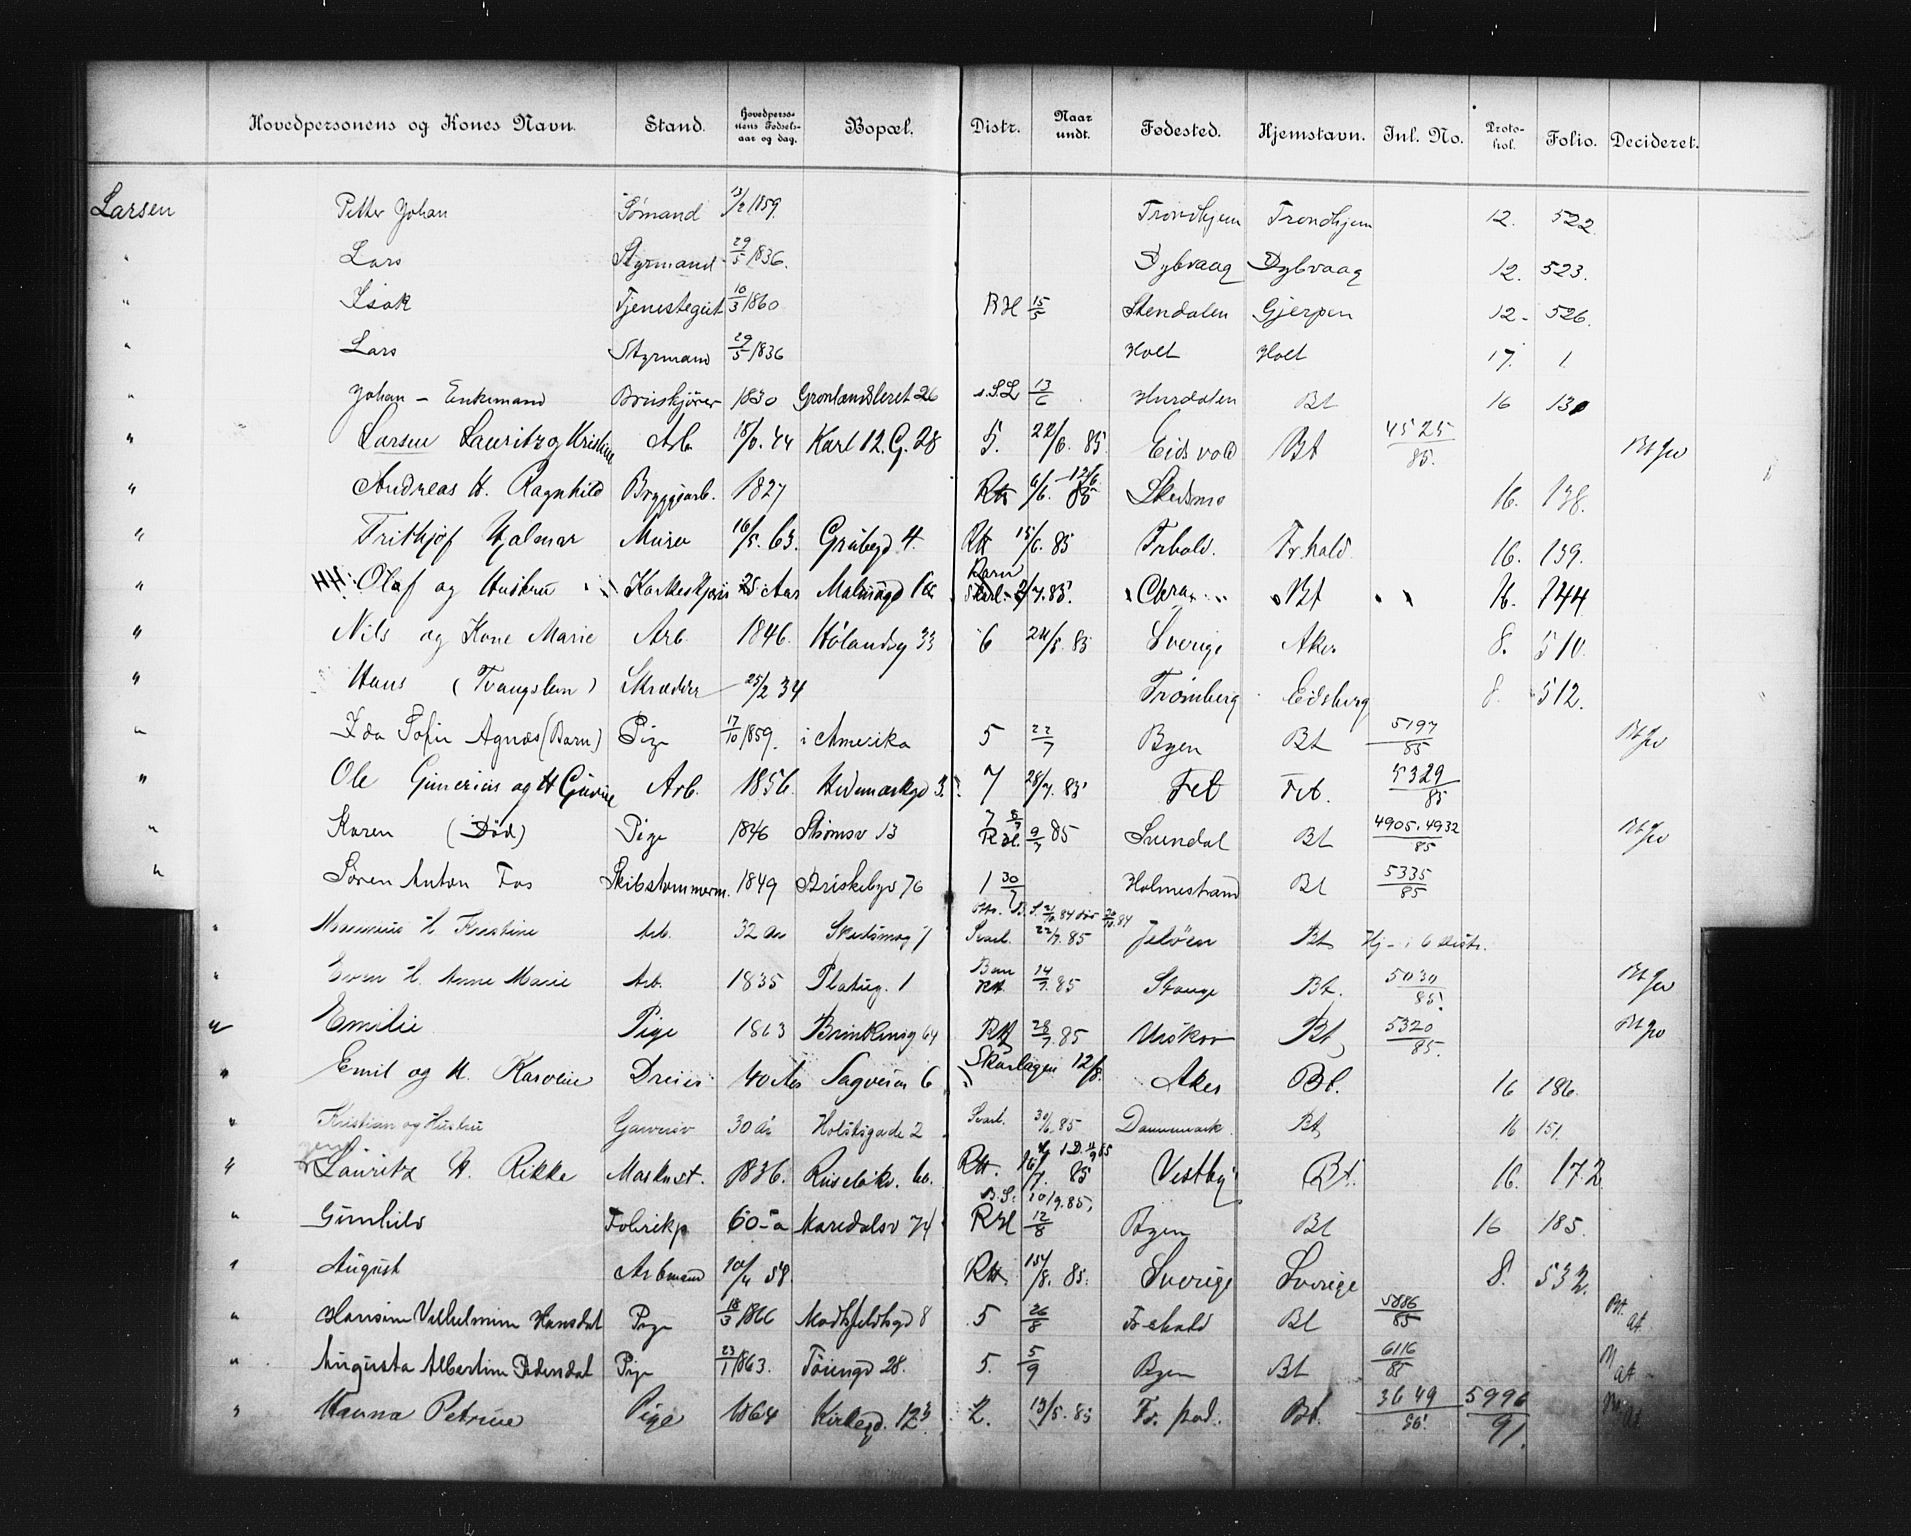 Hovedpersonens og Kones Navn. Stand. Hovedpersonens Fødselsaar og dag. Bopæl. Distr. Naar undt. Fødested. Hjemstavn. Inl. No. Protokol. Folio. Decideret.
Larsen Petter Johan Sømand 13/2 1859. Trondhjem Trondhjem 12. 522.
" Lars Styrmand 29/5 1836. Dybvaag Dybvaag 12. 523.
" Isak Tjenestegut 10/3 1860 RH 15/5 Stendalen Gjerpen 12- 526.
" Lars Styrmand 29/5 1836 Holt Holt 17. 1.
" Johan - Enkemand 1830 Grønlandsleret 26 13/6 Hurdalen Bt 16 130
" Larsen Lauritz og Kristine Arb. 44 Karl 12. G. 28 5. 22/6. 85. Eidsvold Bt 4525/85.
" Andreas H. Ragnhild Bryggearb. 1827 85 Skedsmo 16. 138.
" Frithjof Hjalmar Murer 16/5. 63. Grübegd 4. RH 15/6. 85 Frhald. Fr.hald. 16. 139.
" HH: Olaf og Hustru 25 Aar Malmøgd Barn 2/7. 85. Bt 16. 144
" Nils og Kone Marie Arb. 1846. Hølandsg 33 6 85 Sverige Aker 8. 510.
" Hans (Tvangslem) Skrædder 25/2 34 Trømberg Eidsberg 8. 512.
" Ida Sofie Agnæs (Barn) Pige 17/10 1859. i Amerika 5 22/7 Byen Bt 5197/85
" Ole Gunerius og H Gurine Arb. 1856. Hedemarkgd 3. 7 28/7. 85 Fet Fet. 5329/85
" Karen (Død) Pige 1846 Strømsv 13 7 RH. 9/7 85 Svendal Bt 4905. 4932/85
" Søren Anton Fos Skibstømmerm. 1849 Briskebyv 76 1 30/7 Holmestrand Bt 5335/85
" H Kristine Arb. 32 Aar Skedsmog 7 Svarl. 22/7. 85 Jeløen Bt Hj - i 6 distr.
" Even H. Anne Marie Arb. 1835 Platug. 1 Barn RH. 14/7. 85 Stange Bt. 5030/85.
" Emilie Pige 1863 64 RH 28/7. 85 Urskov Bt 5320/85.
" Emil og H. Karoline Dreier 40 Aar Sagveien 6 Skarlagen 12/8. Aker Bt. 16 186.
" Kristian og Hustru Garver 30 Aar Holstsgade 2 Svarl. 30/6. 85 Dannemark. Bt 16 151.
" Lauritz H. Rikke Maskinst. 1836. Ruseløkv. 60. RH. 16/7. 85 Vestby Bt. 16. 172
" Gunhild Fabrikp 60 a Maridalsv 74 B.S. 10/9. 85, RH 12/8 Byen Bt 16 185.
" August Arbmand 58. RH. 85. Sverige Sverige 8. 532.
" Hansine Vilhelmine Hansdat Pige 18/3 1866 8 5 26/8 Frhald Bt 5886/85 Bt. at.
" Augusta Albertine Pedersdat Pige 23/1 1863. Tøiengd 28. 5. 5/9 Byen Bt 6116/85 at
" Hanna Petrine Pige 1864 Kirkegd. 2. 13/5. 85 Bt. 3649 5996/91.